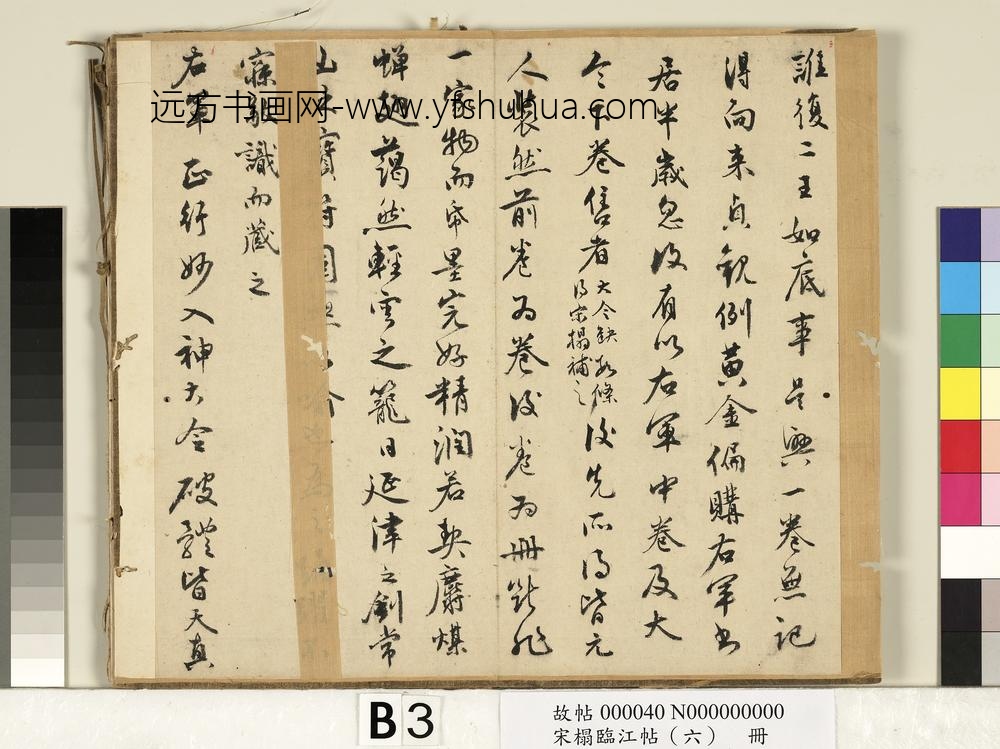 誰復二王如底事是興一卷無記
得向来貞觀例黄金偏購右軍書
居半歲忽復有以右軍中卷及大
令下卷售者大令缺數條得宋搨補之後先所得皆元
人裝然前卷爲卷後卷爲冊
一家物而帋墨完好精潤若麝煤
蟬翅藹然輕雲之籠日延津之劍常
寐識而藏之
右軍正行妙入神大令破體皆天真
远方书画网-www.yfshuhua.com
B3
故帖 000040 N000000000
宋搨臨江帖（六） 冊